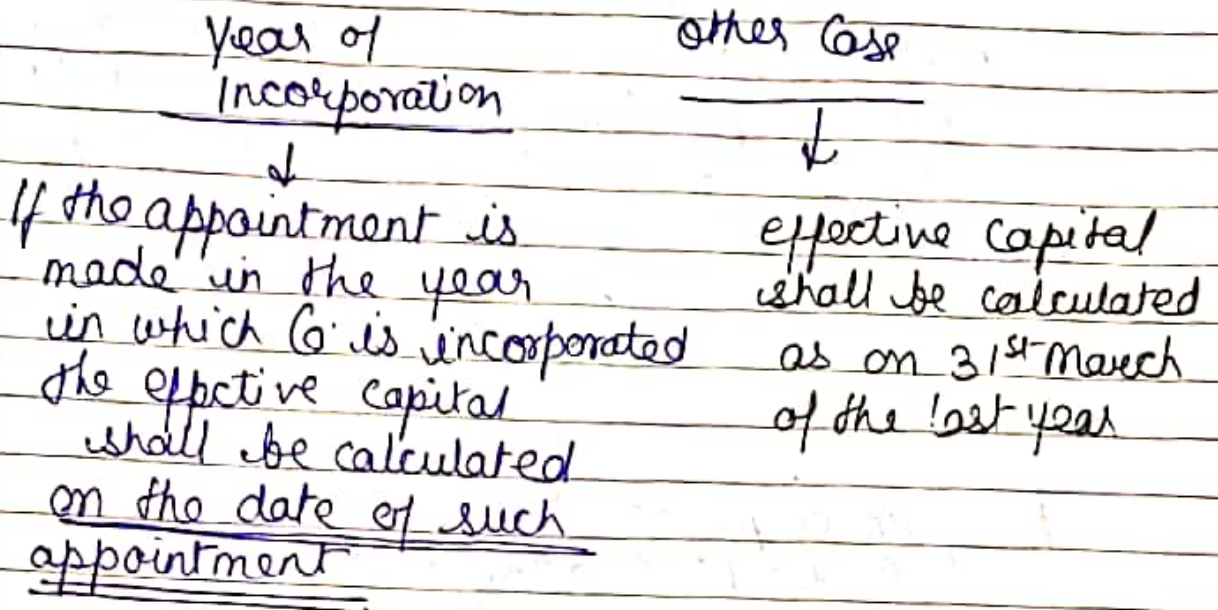 Year of
Incorporation
↓
If the appointment is
made in the year
in which Co. is incorporated
the effective capital
shall be calculated
on the date of such
appointment
Other Case
↓
effective capital
shall be calculated
as on 31st March
of the last year